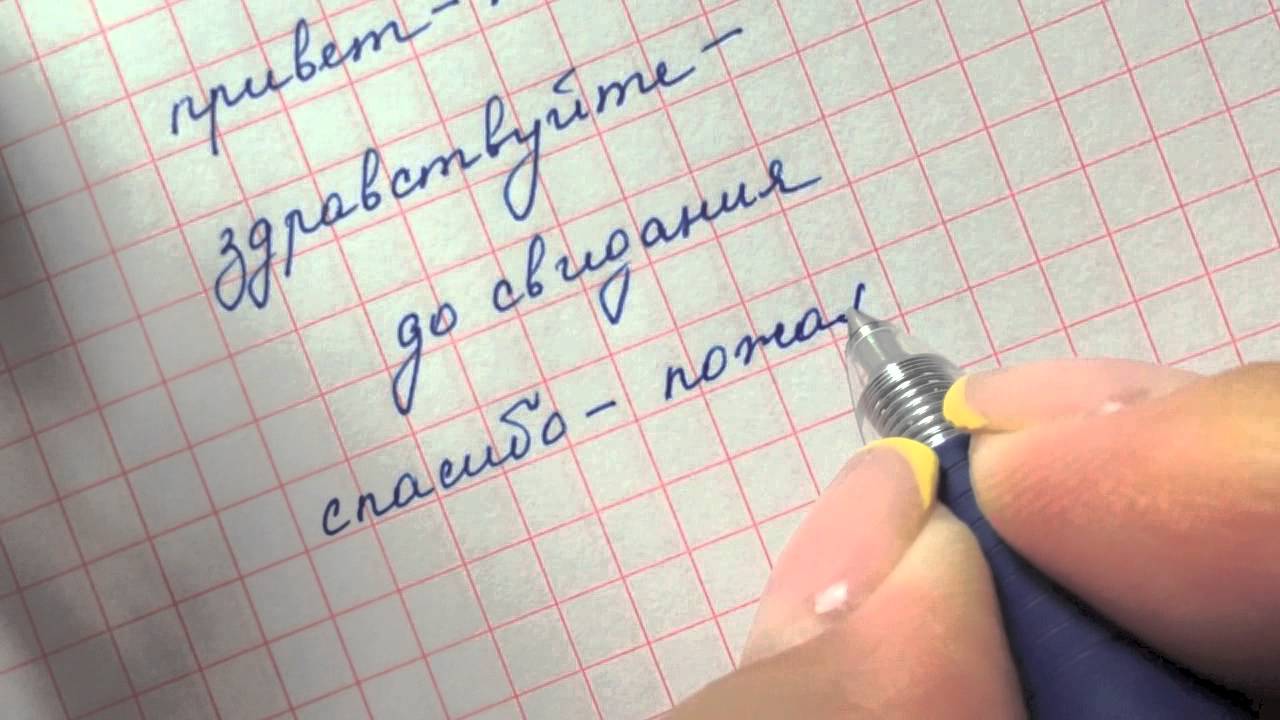 привет -
здравствуйте -
до свидания
спасибо - пожа